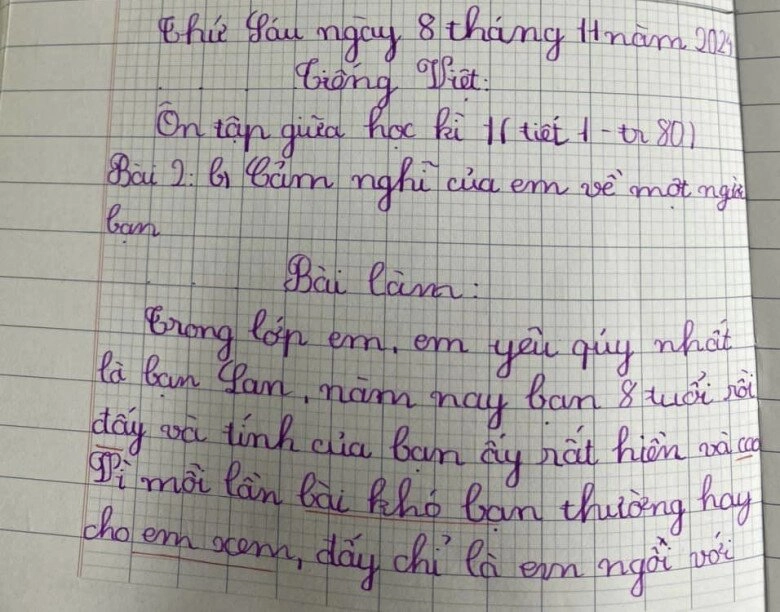 Thứ Sáu ngày 8 tháng 11 năm 2024
Tiếng Việt:
Ôn tập giữa học kì 1 ( tiết 1 - tr 80)
Bài 2: Cảm nghĩ của em về một người
bạn
Bài làm:
Trong lớp em, em yêu qúy nhất
là bạn Lan, năm nay bạn 8 tuổi rồi
đấy và tính của bạn ấy rất hiền và cao
Vì mỗi lần bài khó bạn thường hay
cho em xem, đấy chỉ là em ngồi với